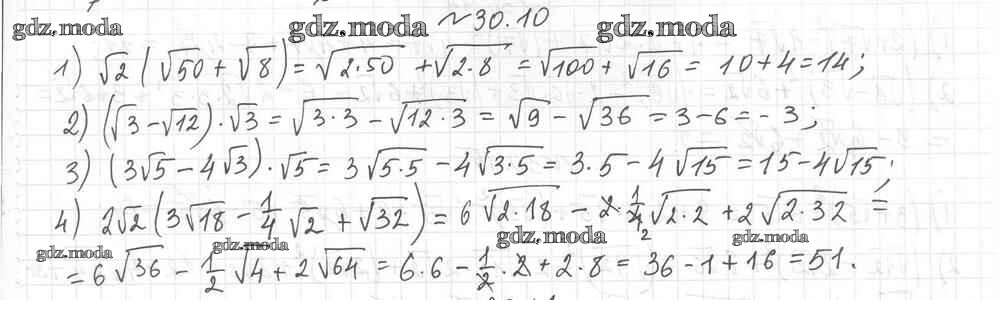 gdz.moda gdz.moda №30.10 gdz.moda
1) √2 (√50 + √8) = √2·50 + √2·8 = √100 + √16 = 10+4=14;
2) (√3 - √12)·√3 = √3·3 - √12·3 = √9 - √36 = 3-6 = -3;
3) (3√5 - 4√3)·√5 = 3√5·5 - 4√3·5 = 3·5 - 4√15 = 15-4√15;
4) 2√2 (3√18 - 1/4 √2 + √32) = 6√2·18 - 2·1/4 2 √2·2 + 2√2·32 =
gdz.moda gdz.moda gdz.moda gdz.moda
= 6√36 - 1/2 √4 + 2√64 = 6·6 - 1/2·2 + 2·8 = 36-1+16=51.